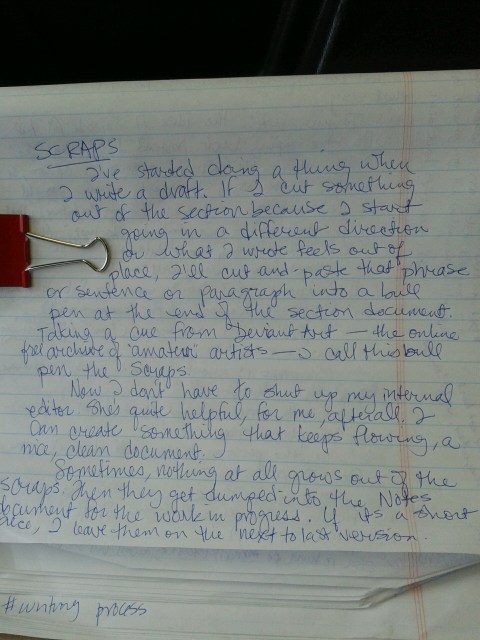 SCRAPS
I've started doing a thing when
I write a draft. If I cut something
out of the section because I start
going in a different direction
or what I wrote feels out of
place, I'll cut-and-paste that phrase
or sentence or paragraph into a bull
pen at the end of the section document.
Taking a cue from Deviant Art — the online
archive of "amateur" artists — I call this bull
pen the Scraps.
Now I don't have to shut up my internal
editor. She's quite helpful, for me, after all. I
can create something that keeps flowing, a
nice, clean document.
Sometimes, nothing at all grows out of the
scraps. Then they get dumped into the Notes
document for the work in progress. If it's a short
piece, I leave them on the "next to last" version.
#writing process